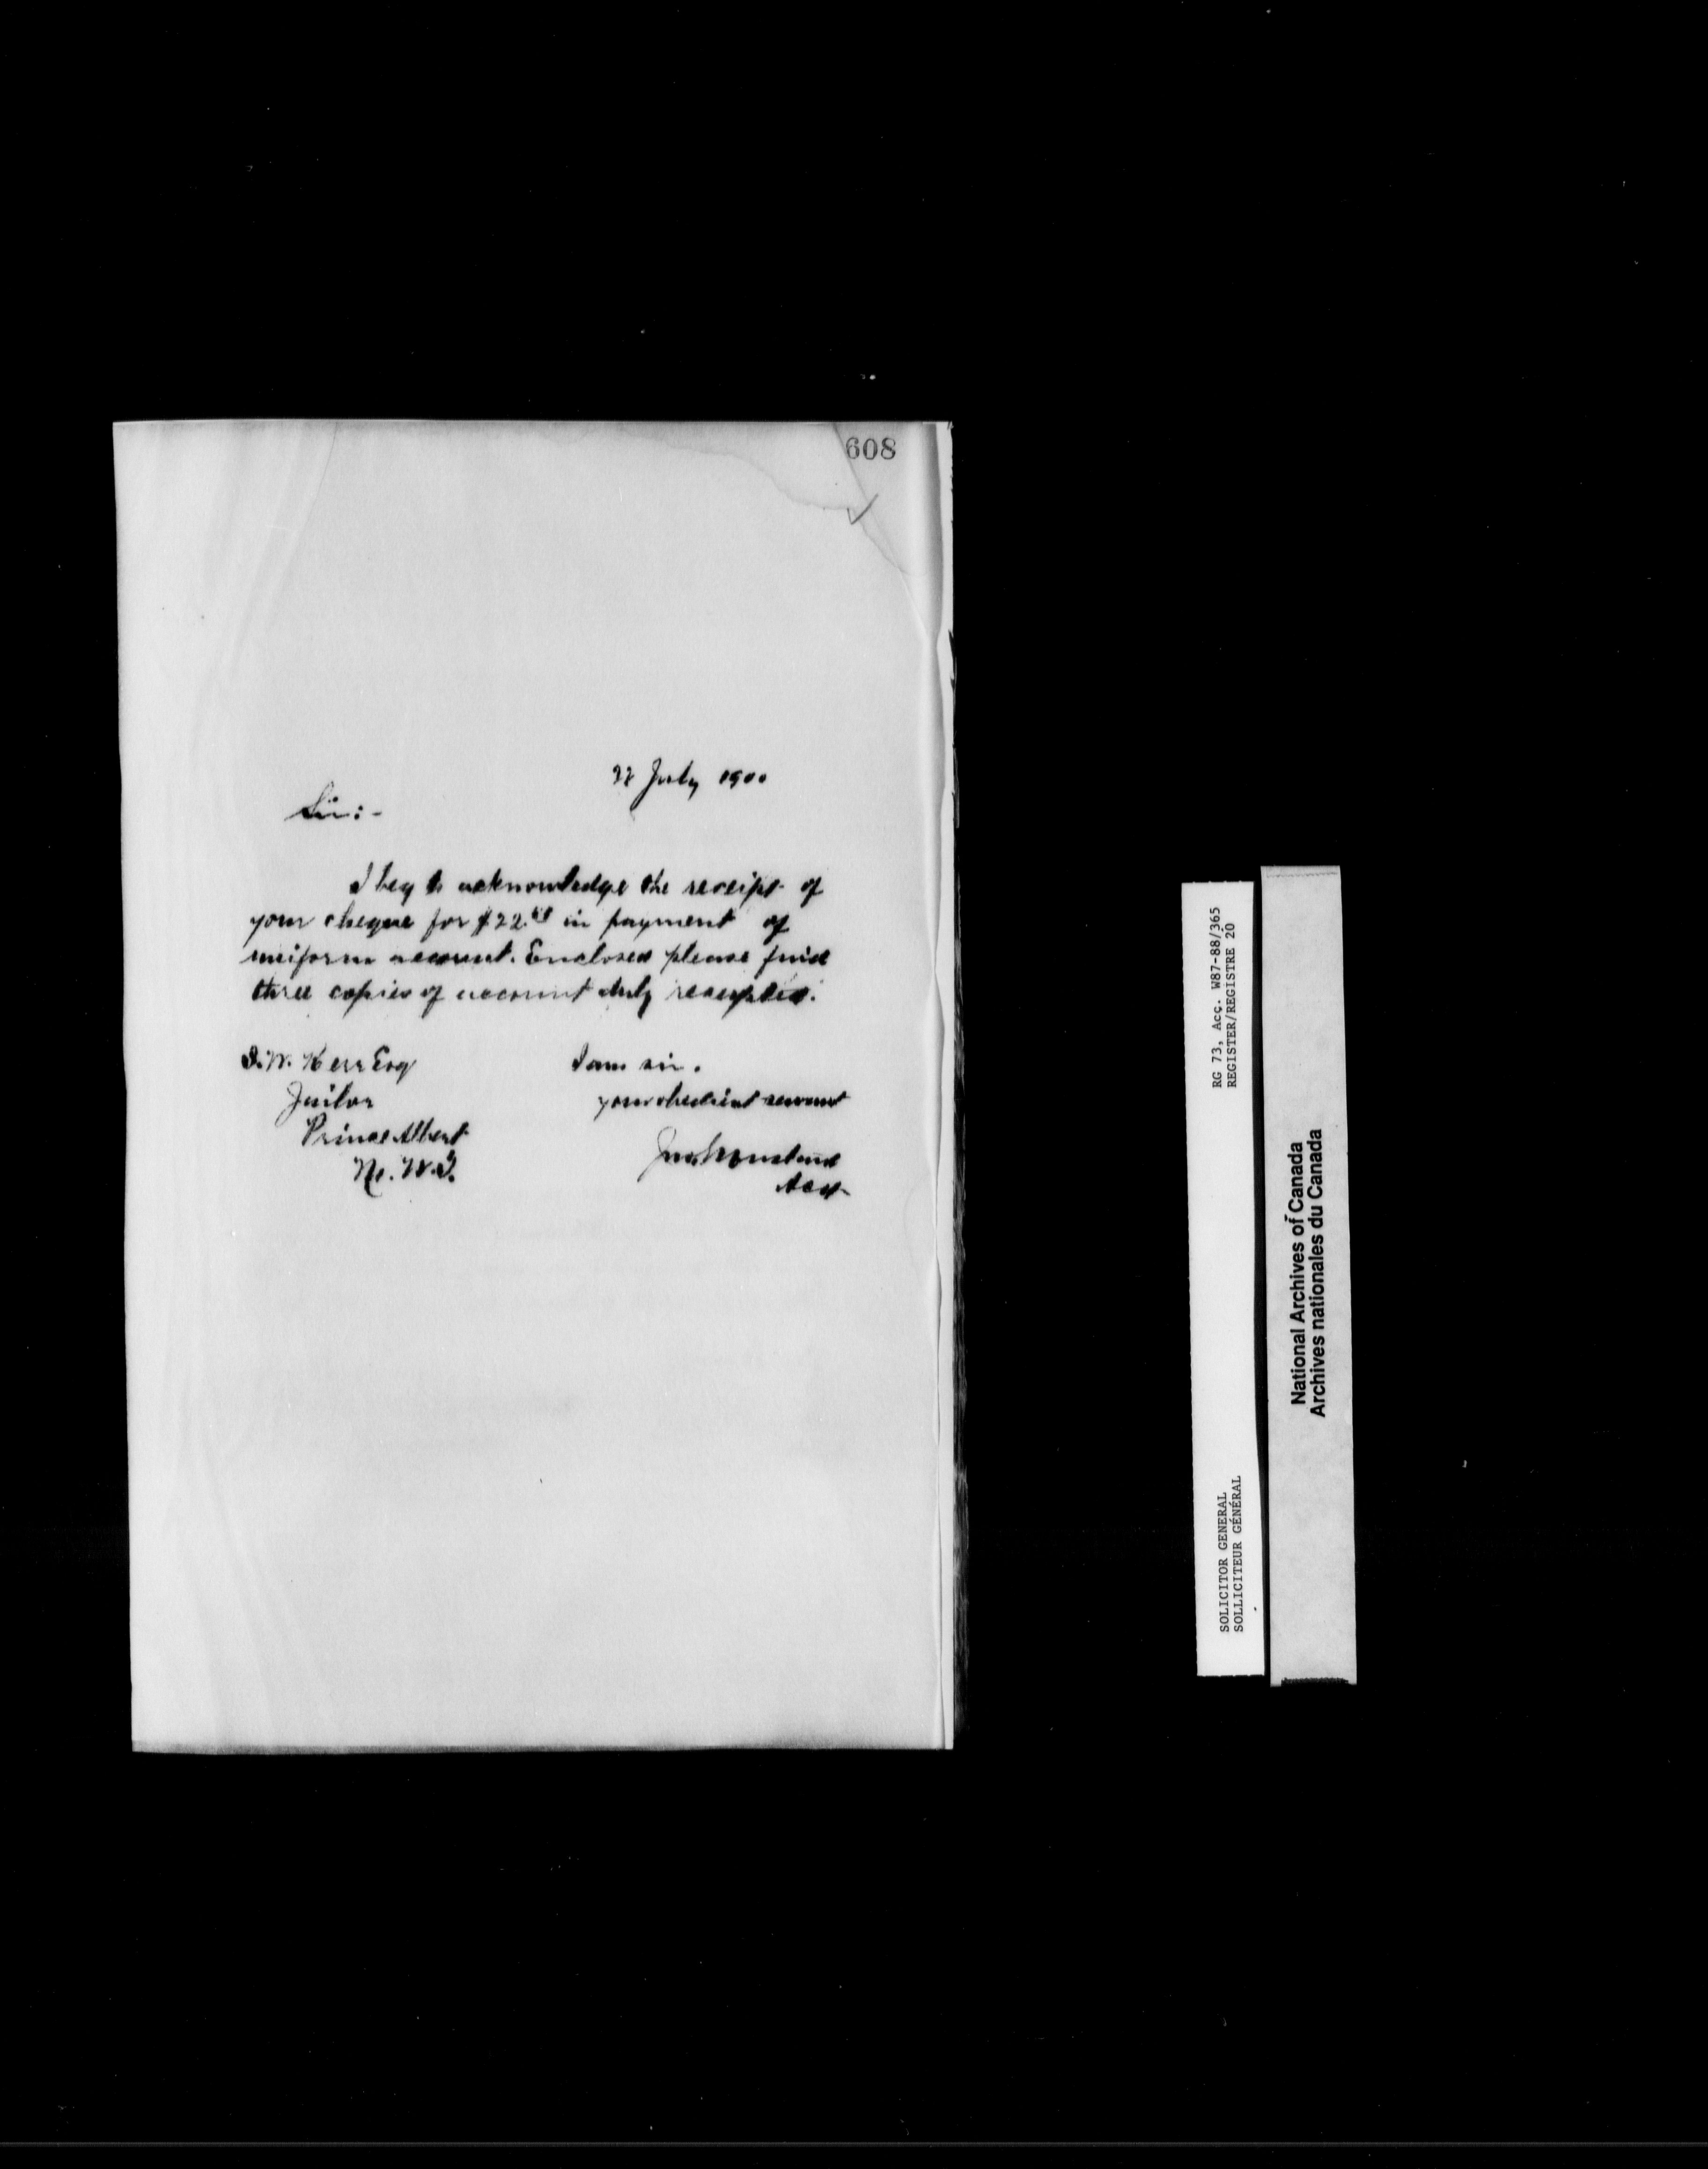 608
July 1900
Sir:-
I beg to acknowledge the receipt of
your cheque for $22. in payment of
uniform account. Enclosed please find
three copies of account duly receipted.
I am sir.
your obedient servant
Acct
W. Kerr Esq
Jailor
Prince Albert
N.W.T.
RG 73, Acc. W87-88/365
REGISTER/REGISTRE 20
SOLICITOR GENERAL
SOLLICITEUR GÉNÉRAL
National Archives of Canada
Archives nationales du Canada